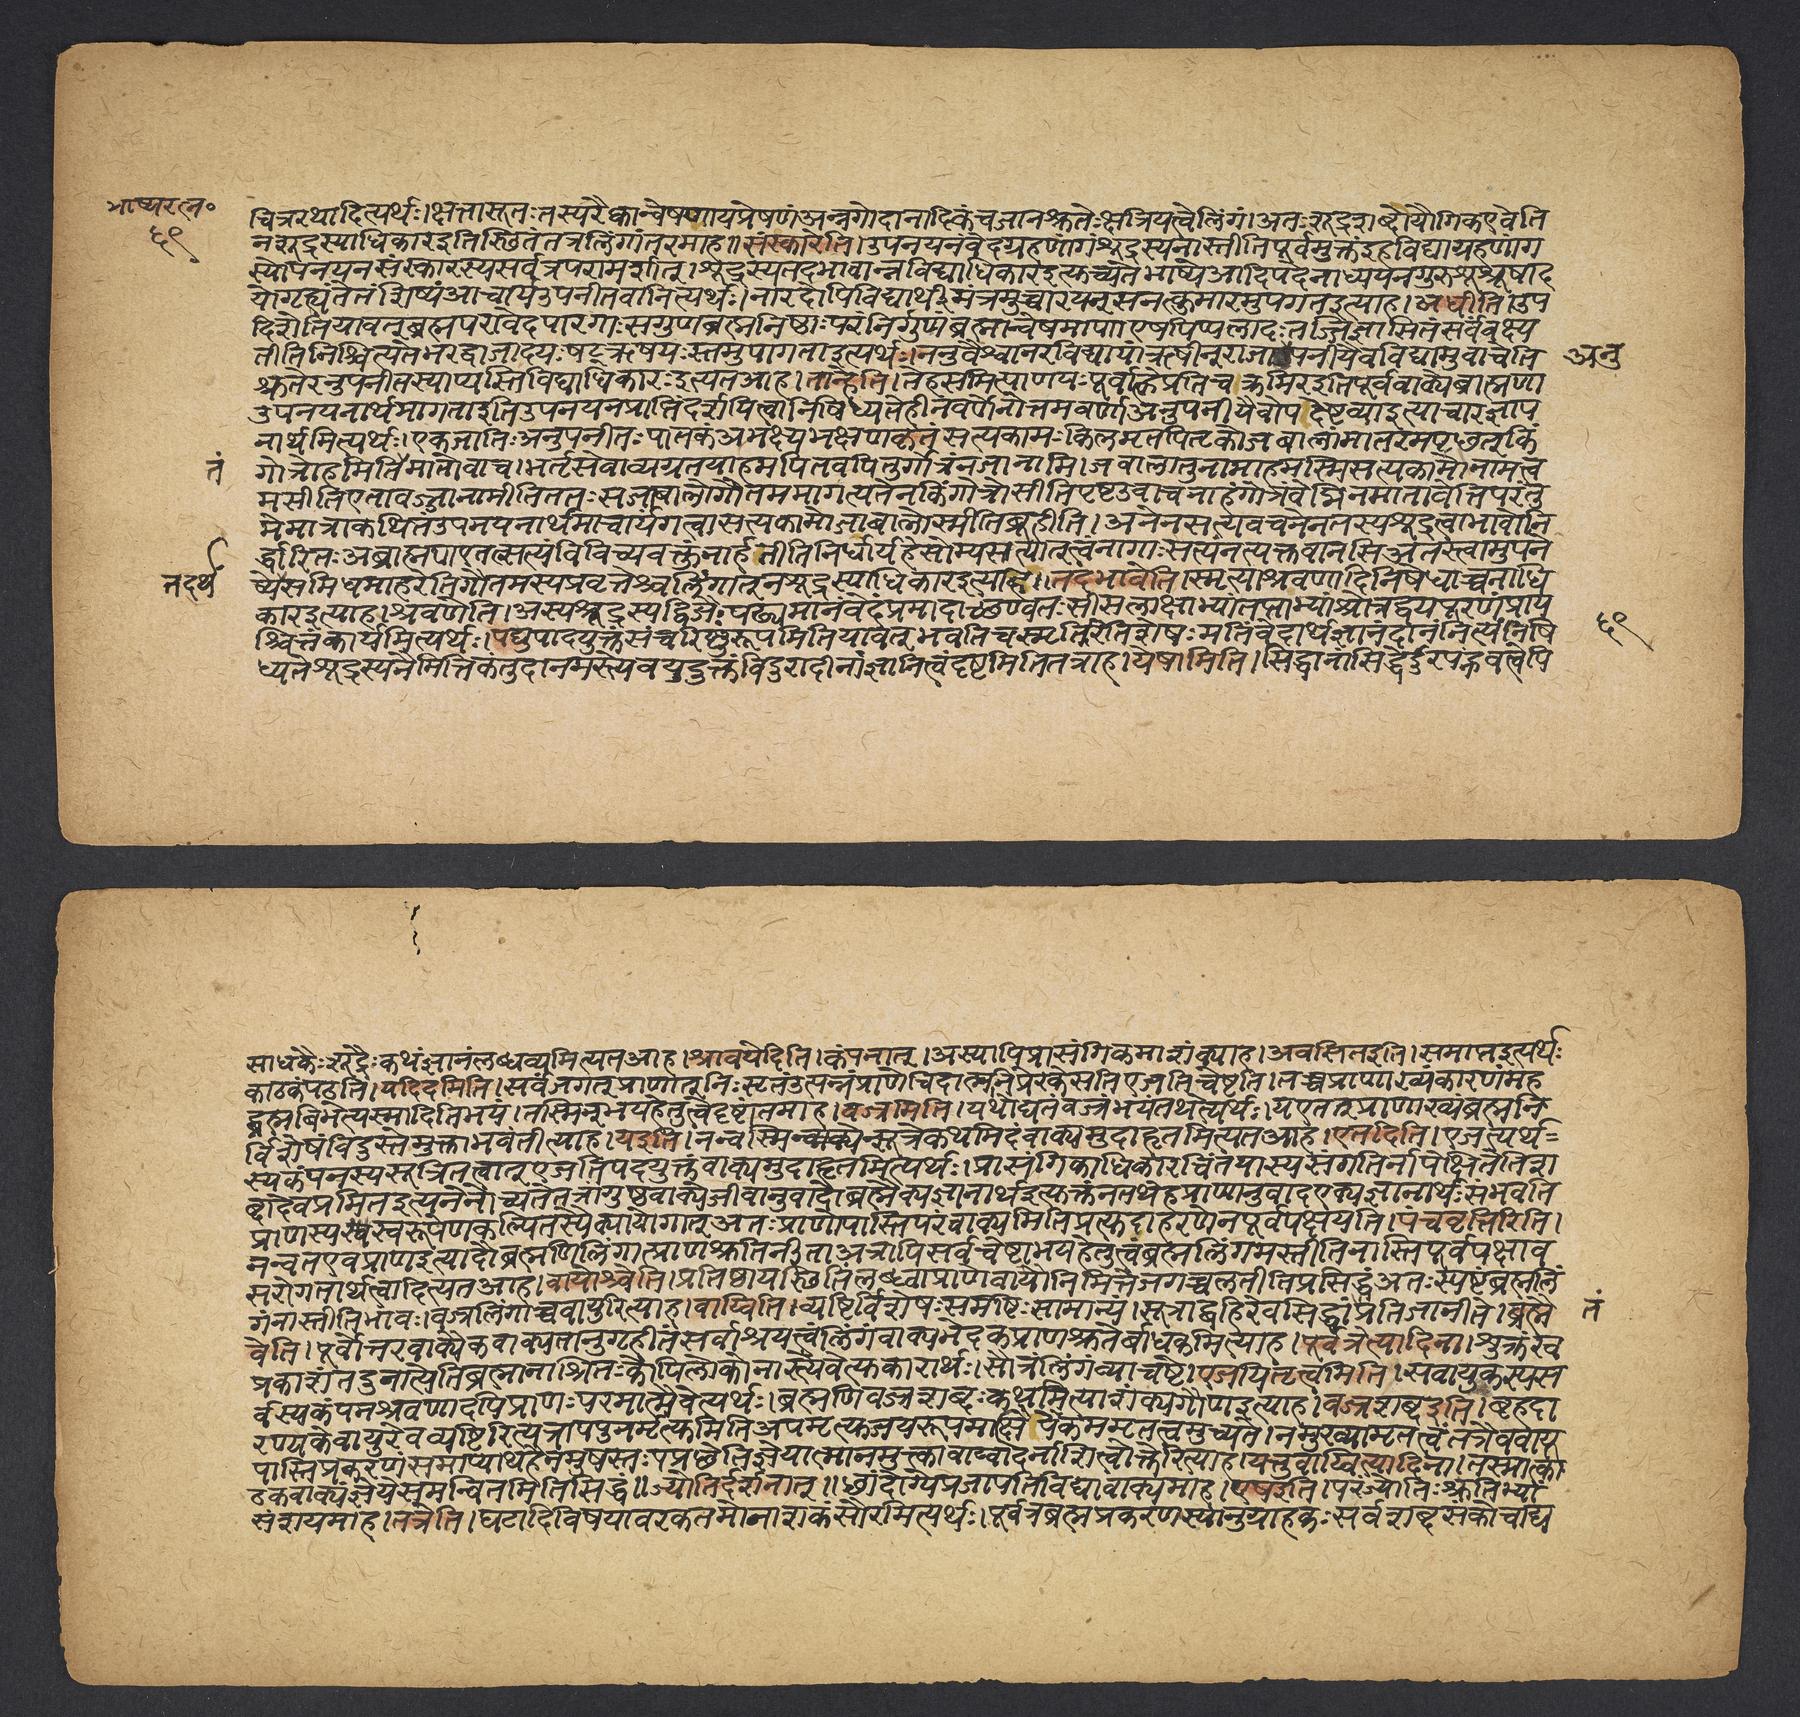 भाष्यरत्न॰
६९
चित्ररथादित्यर्थः।क्षत्तासूतःतस्यरैक्वान्वेषणायप्रेषणंअन्नगोदानादिकंचजानश्रुतेःक्षत्रियत्वेलिंगं।अतःशूद्रशब्दोयौगिकएवेति
नशूद्रस्याधिकारइतिस्थितंतत्रलिंगांतरमाह॥संस्कारेति।उपनयनंवेदग्रहणांगंशूद्रस्यनास्तीतिपूर्वमुक्तंइहविद्याग्रहणांग
स्योपनयनसंस्कारस्यसर्वत्रपरामर्शात्।शूद्रस्यतदभावान्नविद्याधिकारइत्युच्यतेभाष्येआदिपदेनाध्ययनगुरुशुश्रूषाद
योगृह्यंतेतंशिष्यंआचार्यउपनीतवानित्यर्थः।नारदोपिविद्यार्थीमंत्रमुच्चारयन्सनत्कुमारमुपगतइत्याह।अधीति।उप
दिशेतियावत्ब्रह्मपरावेदपारगाःसगुणब्रह्मनिष्ठाःपरंनिर्गुणंब्रह्मान्वेषमाणाएषपिप्पलादःतज्जिज्ञासितंसर्वंवक्ष्य
तीतिनिश्चित्यतेभरद्वाजादयःषट्ऋषयःस्तमुपागताइत्यर्थः।ननुवैश्वानरविद्यायांऋषीन्राजा पनीयैवविद्यामुवाचेति
अनु
श्रुतेरनुपनीतस्याप्यस्तिविद्याधिकारःइत्यतआह।तान्हेति।तेहसमित्पाणयःपूर्वाह्णेप्रतिचक्रमिरेइतिपूर्ववाक्येब्राह्मणा
उपनयनार्थमागताइतिउपनयनप्राप्तिंदर्शयित्वानिषिध्यतेहीनवर्णेनोत्तमवर्णाअनुपनीयैवोपदेष्टव्याइत्याचारज्ञाप
नार्थमित्यर्थः।एकजातिःअनुपनीतःपातकंअभक्ष्यभक्षणकृतंसत्यकामःकिलमृतपितृकोजबालांमातरमपृछत्किं
तं
गोत्रोहमितिमातोवाच।भर्तृसेवाव्यग्रतयाहमपितवपितुर्गोत्रंनजानामि।जबालातुनामाहमस्मिसत्यकामोनामत्व
मसीतिएतावज्जानामीतिततःसजाबालोगौतममागत्यतेनकिंगोत्रोसीतिपृष्टउवाचनाहंगोत्रंवेद्मिनमातावेत्तिपरंतु
मेमात्राकथितंउपनयनार्थमाचार्यंगत्वासत्यकामोजाबालोस्मीतिब्रूहीति।अनेनसत्यवचनेनतस्यशूद्रत्वाभावोनि
र्द्धारितःअब्राह्मणएतत्सत्यंविविच्यवक्तुंनार्हतीतिनिर्धार्यहेसोम्यसत्यात्त्वंनागाःसत्यंनत्यक्तवानसिअतस्त्वामुपने
तदर्थं
ष्येसमिधमाहरेतिगौतमस्यप्रवृत्तेश्चलिंगात्नशूद्रस्याधिकारइत्याह।तदभावेति।स्मृत्याश्रवणादिनिषेधाच्चनाधि
कारइत्याह।श्रवणेति।अस्यशूद्रस्यद्विजैःपठ्यमानंवेदंप्रमादाच्छृण्वतःसीसलाक्षाभ्यांतप्ताभ्यांश्रोत्रद्वयपूरणंप्राय
श्चित्तंकार्यमित्यर्थः।पद्युपादयुक्तंसंचरिष्णुरूपमितियावत्भवतिचस्मृतिरितिशेषःमतिर्वेदार्थज्ञानंदानंनित्यंनिषि
६९
ध्यतेशूद्रस्यनैमित्तिकंतुदानमस्त्येवयदुक्तंविदुरादीनांज्ञानित्वंदृष्टमितितत्राह।येषामिति।सिद्धानांसिद्धेर्दुरपह्नवत्वेपि
साधकैःशूद्रैःकथंज्ञानंलब्धव्यमित्यतआह।श्रावयेदिति।कंपनात्।अस्यापिप्रासंगिकमाशंक्याह।अवसितइति।समाप्तइत्यर्थः
काठकंपठति।यदिदमिति।सर्वंजगत्प्राणात्निःसृतंउत्पन्नंप्राणेचिदात्मनिप्रेरकेसतिएजतिचेष्टति।तच्चप्राणाख्यंकारणंमह
द्ब्रह्मबिभेत्यस्मादितिभयं।तस्मिन्भयहेतुत्वेदृष्टांतमाह।वज्रमिति।यथोद्यतंवज्रंभयंतथेत्यर्थः।यएतत्प्राणाख्यंब्रह्मनि
र्विशेषंविदुस्तेमुक्ताभवंतीत्याह।यइति।नन्वस्मिन्वाक्येसूत्रेकथमिदंवाक्यमुदाहृतमित्यतआह।एतदिति।एजत्यर्थ
स्यकंपनस्यसूत्रितत्वात्एजतिपदयुक्तंवाक्यमुदाहृतमित्यर्थः।प्रासंगिकाधिकारचिंतयास्यसंगतिर्नापेक्षितेतिश
ब्दादेवप्रमितइत्यनेनोच्यतेतत्रांगुष्ठवाक्येजीवानुवादोब्रह्मैक्यज्ञानार्थइत्युक्तंनतथेहप्राणानुवादएक्यज्ञानार्थःसंभवति
प्राणस्यस्वरूपेणकल्पितस्यैक्यायोगात्अतःप्राणोपास्तिपरंवाक्यमितिप्रत्युदाहरणेनपूर्वपक्षयति।पंचवृत्तिरिति।
नन्वतएवप्राणइत्यादौब्रह्मणिलिंगात्प्राणश्रुतिर्नीताअत्रापिसर्वचेष्टाभयहेतुत्वंब्रह्मलिंगमस्तीतिनास्तिपूर्वपक्षाव
सरोगतार्थत्वादित्यतआह।वायोश्चेति।प्रतिष्ठायस्थितिंलब्ध्वाप्राणेवायौनिमित्तेजगच्चलतीतिप्रसिद्धंअतःस्पष्टंब्रह्मलिं
गंनास्तीतिभावः।वज्रलिंगाच्चवायुरित्याह।वाय्विति।व्यष्टिर्विशेषःसमष्टिःसामान्यं।सूत्राद्बहिरेवसिद्धांप्रतिजानीते।ब्रह्मै
तं
वेति।पूर्वोत्तरवाक्यैकवाक्यतानुगृहीतंसर्वाश्रयत्वंलिंगंवाक्यभेदकप्राणश्रुतेर्बाधकमित्याह।पूर्वत्रेत्यादिना।शुक्रंस्व
प्रकाशंतदुनात्येतिब्रह्मानाश्रितःकोपिलोकोनास्त्येवेत्युकारार्थः।सौत्रंलिंगंव्याचष्टे।एजयितृत्वमिति।सवायुकस्यस
र्वस्यकंपनश्रवणादपिप्राणःपरमात्मैवेत्यर्थः।ब्रह्मणिवज्रशब्दःकथमित्याशंक्यगौणइत्याह।वज्रशब्दइति।बृहदा
रण्यकेवायुरेवव्यष्टिरित्यत्रापपुनर्मृत्युमितिअपमृत्युजयरूपमापेक्षिकममृतत्वमुच्यते।नमुख्यामृतत्वंतत्रैववायू
पास्तिप्रकरणंसमाप्याथहैनमुषस्तःपप्रछेतिज्ञेयात्मानमुत्क्कावाय्वादेर्नाशित्वोक्तेरित्याह।यत्तुवाय्वित्यादिना।तस्मात्का
ठकवाक्यंज्ञेयेसमन्वितमितिसिद्धं॥ज्योतिर्दर्शनात्॥छांदोग्येप्रजापतिविद्यावाक्यमाह।एषइति।परंज्योतिःश्रुतिभ्यां
संशयमाह।तत्रेति।घटादिविषयावरकतमोनाशकंसौरमित्यर्थः।पूर्वत्रब्रह्मप्रकरणस्यानुग्राहकःसर्वशब्दसंकोचाद्य